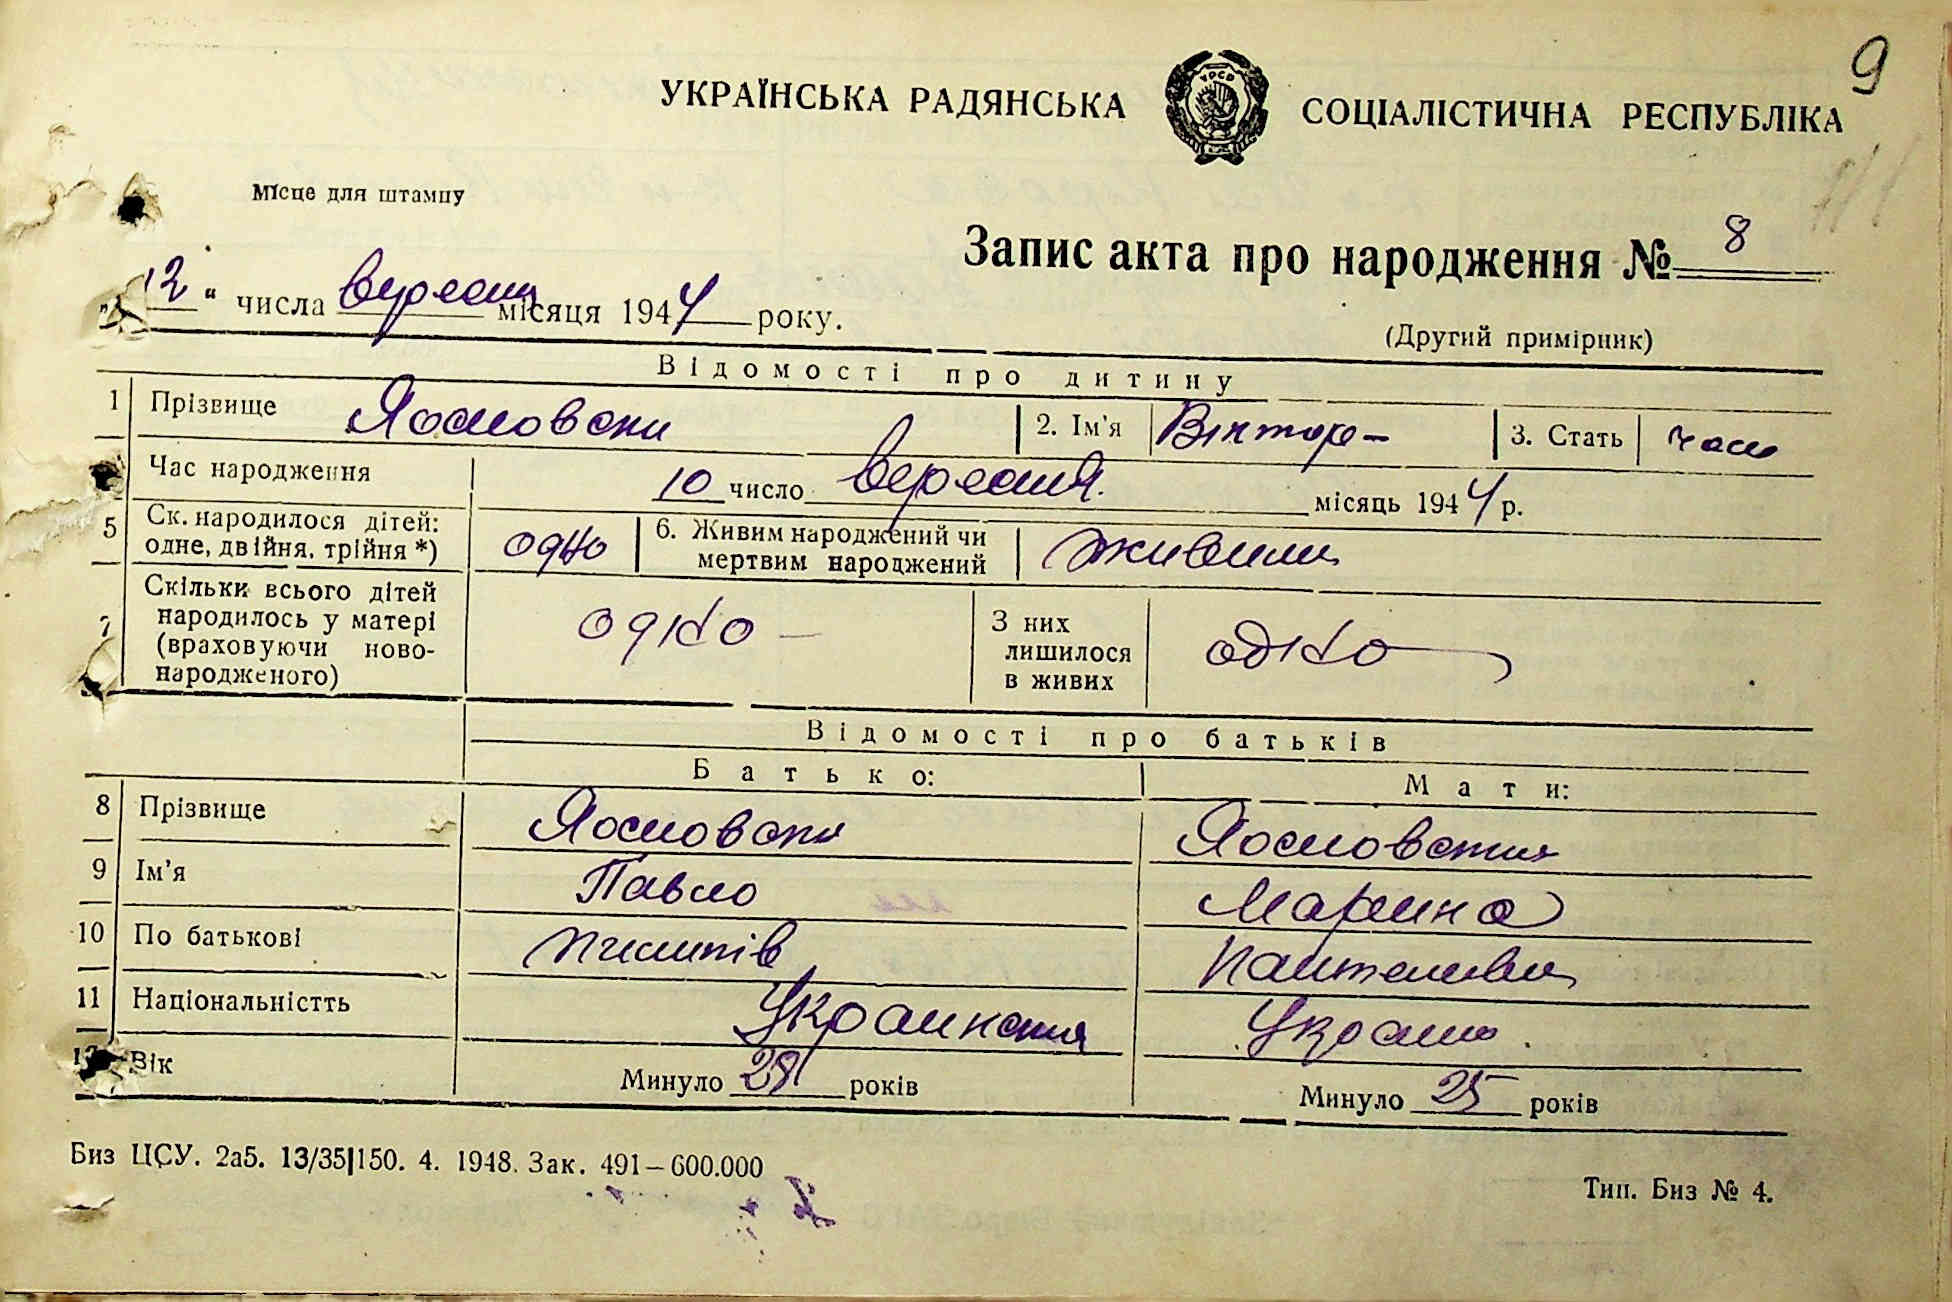 9
УКРАЇНСЬКА РАДЯНСЬКА СОЦІАЛІСТИЧНА РЕСПУБЛІКА
Місце для штампу
Запис акта про народження № 8
„12“ числа вересня місяця 1944 року.
(Другий примірник)
Відомості про дитину
1 Прізвище 2. Ім'я Віктор 3. Стать
Час народження 10 число вересня місяць 1944 р.
5 Ск. народилося дітей: одне, двійня, трійня *) одно 6. Живим народжений чи мертвим народжений живим
7 Скільки всього дітей народилось у матері (враховуючи новонародженого) одно З них лишилося в живих одно
Відомості про батьків
Батько: Мати:
8 Прізвище
9 Ім'я Павло Марина
10 По батькові Пилипів
11 Національністть
12 Вік Минуло років Минуло 25 років
Биз ЦСУ. 2аб. 13/35|150. 4. 1948. Зак. 491—600.000
Тип. Биз № 4.